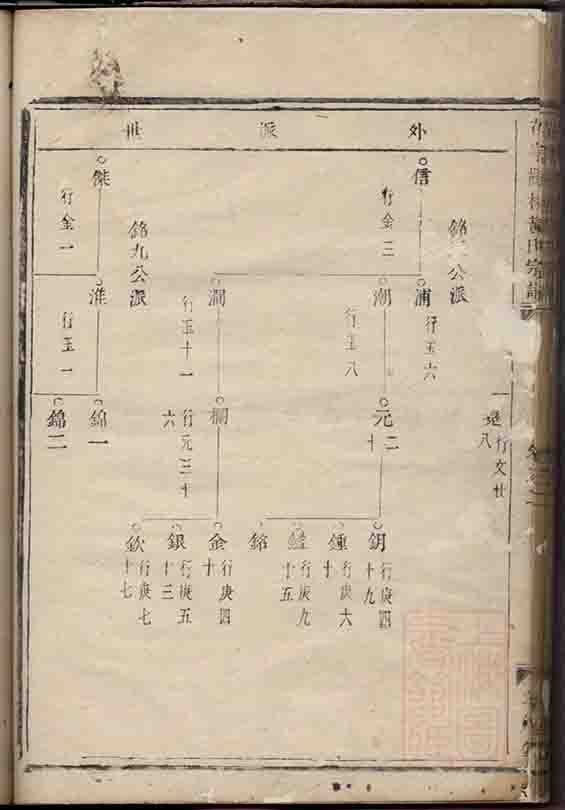 外派世
信
行金三
公派
浦
行玉六
潮
行玉八
元二十
鈅
行庚四十九
鍾
行庚六十
行庚九十五
銘
澗
行玉十一
欄
行元三十六
金
行庚四十
銀
行庚五十三
欽
行庚七十七
銘九公派
傑
行金一
淮
行玉一
錦一
錦二
行文廿八
氏宗譜